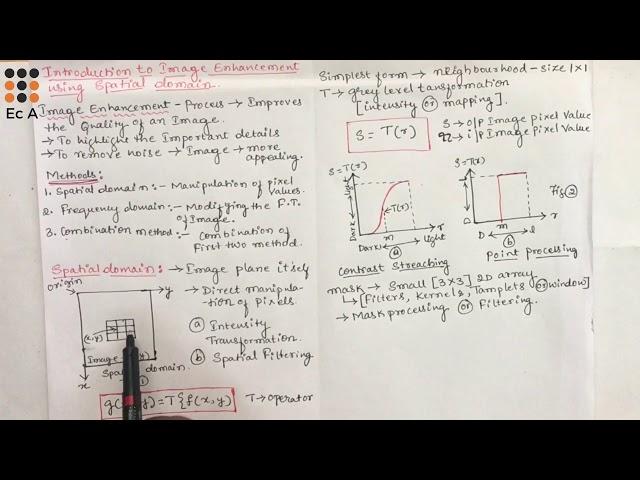 Ec A
Introduction to Image Enhancement
using Spatial domain.
Image Enhancement - Process → Improves
the Quality of an Image.
→ To highlight the Important details
→ To remove noise → Image → more
appealing.
Methods:
1. Spatial domain :- Manipulation of pixel
values.
2. Frequency domain :- Modifying the F.T.
of Image.
3. Combination method :- Combination of
First two method.
Spatial domain: → Image plane itself
→ Direct manipula-
tion of pixels.
ⓐ Intensity
Transformation.
ⓑ Spatial Filtering
origin
y
(x,y)
Image
y)
Spatial domain.
x
g( y) = T{f(x,y)
T → operator
Simplest form → neighbourhood - size 1x1
T → grey level tansformation
[intensity or mapping].
S = T(r)
S → o|p Image pixel value
r → i|p Image pixel value
S = T(r)
Light
Dark
T(r)
m
r
Dark
Light
ⓐ
Contrast Streaching
S = T(r)
L
D
D
m
l
r
ⓑ
Fig ②
Point processing
mask → Small [3x3] 2D array
↳ [Filters, Kernels, Templets or window]
→ Mask processing or Filtering.